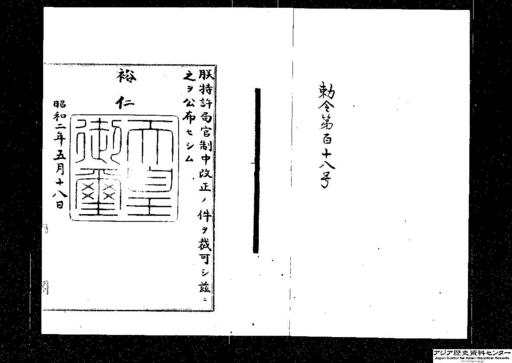 勅令第百十八号
朕特許局官制中改正ノ件ヲ裁可シ茲ニ
之ヲ公布セシム
裕仁
天皇御璽
昭和二年五月十八日
アジア歴史資料センター
Japan Center for Asian Historical Records